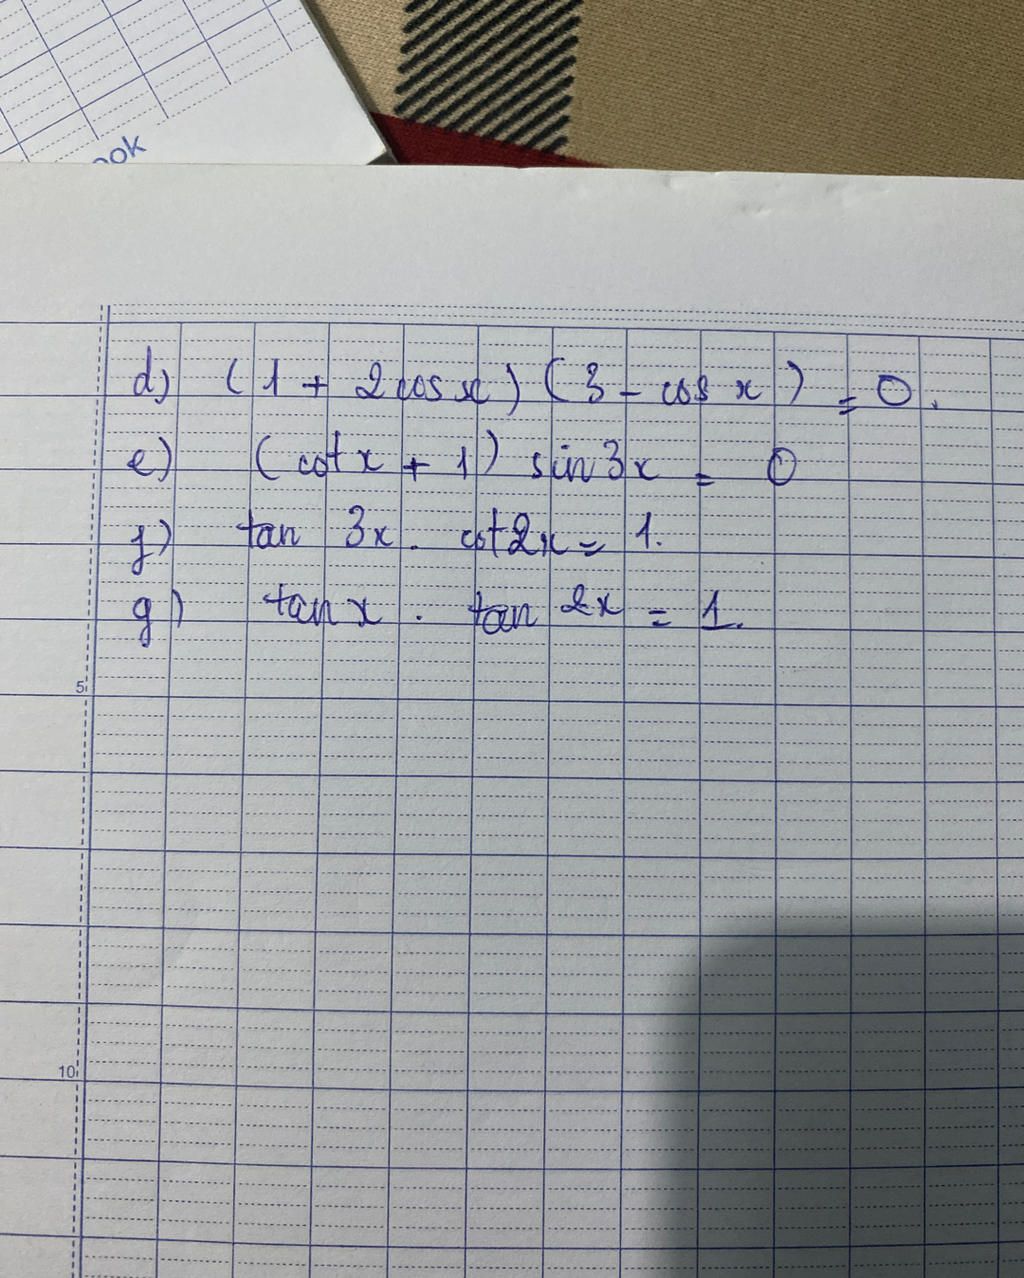 ook
d) (1 + 2cos x) (3 - cos x) = 0.
e) (cot x + 1) sin 3x = 0
f) tan 3x . cot 2x = 1.
g) tan x . tan 2x = 1.
5
10